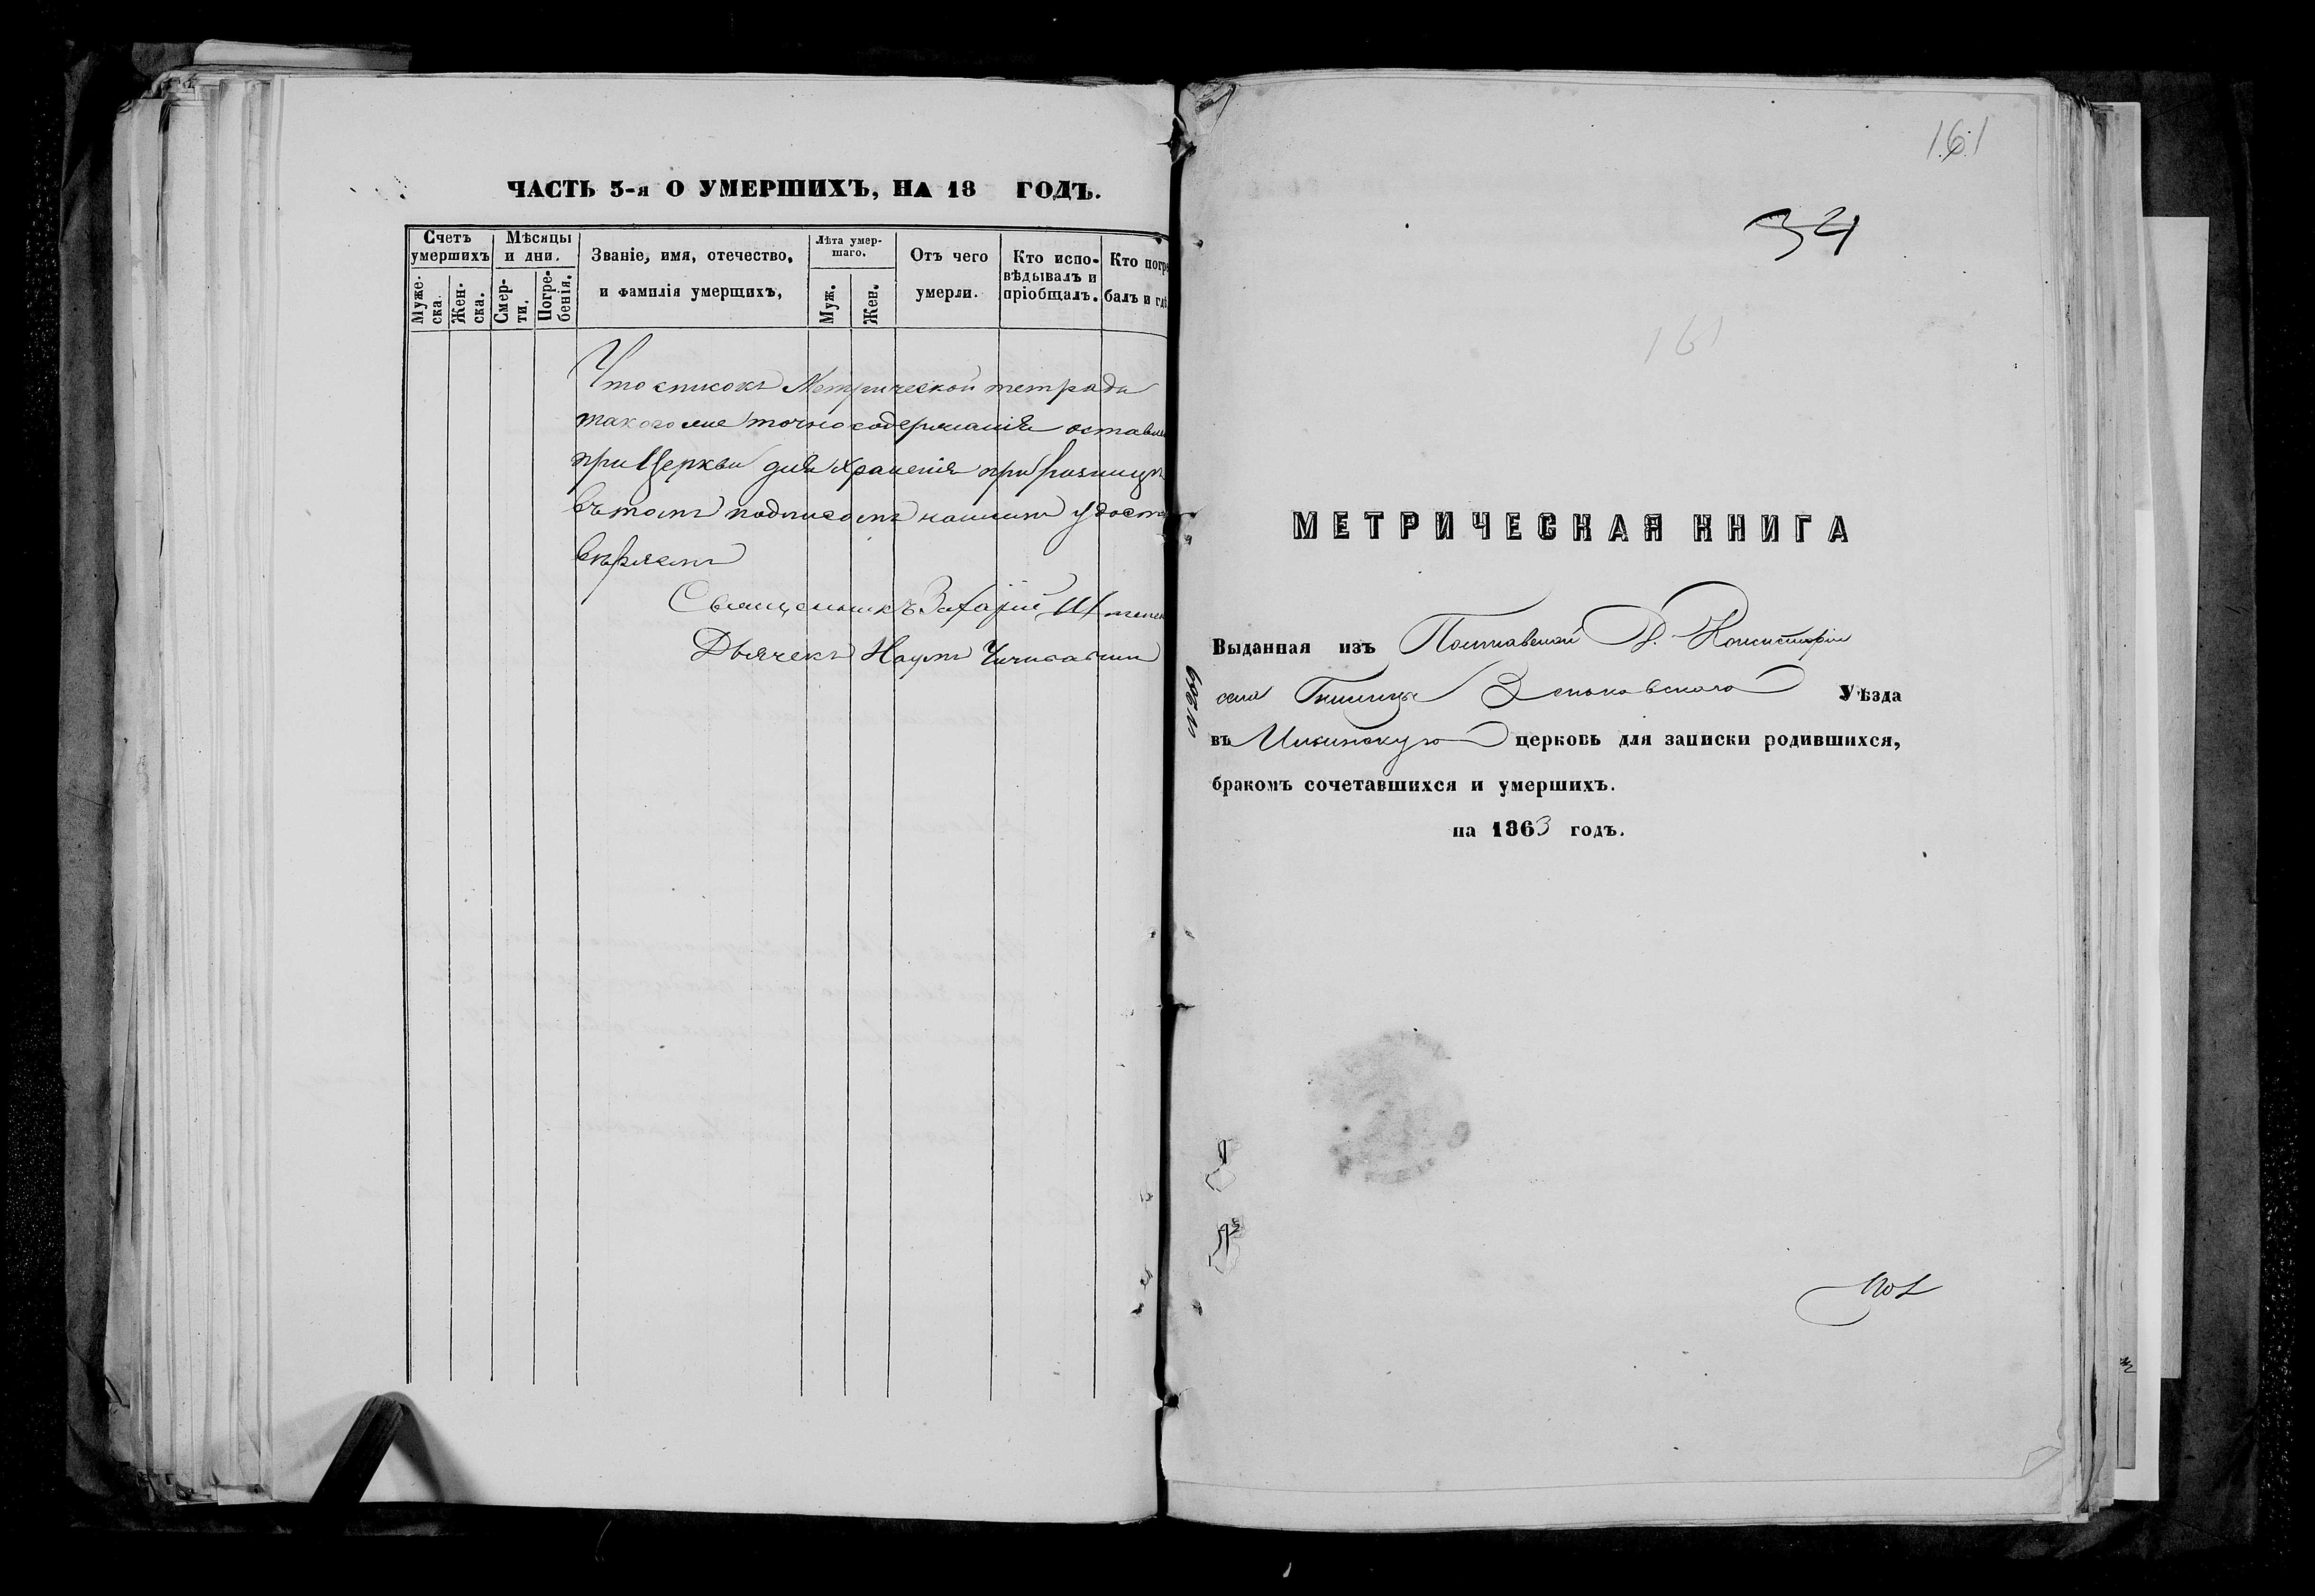 ЧАСТЬ 3-я О УМЕРШИХЪ, НА 18 ГОДЪ.
Счетъ умершихъ
Мѣсяцы и дни.
Званіе, имя, отечество, и фамилія умершихъ,
Лѣта умер-шаго.
Отъ чего умерли.
Кто испо-вѣдывалъ и пріобщалъ.
Кто погре балъ и гдѣ
Муже-ска.
Жен-ска.
Смер-ти.
Погре-бенія.
Муж.
Жен.
Что списокъ Метрической тетради
такого же точно содержанія оставле
при Церкви для храненія при
въ томъ подписомъ нашимъ удосто
вѣряемъ
Священникъ Захарій
Дьячекъ Наумъ
161
34
161
МЕТРИЧЕСКАЯ КНИГА
Выданная изъ Полтавской Д. Консисторіи
села Зеньковскаго Уѣзда
въ церковь для записки родившихся,
бракомъ сочетавшихся и умершихъ.
на 1863 годъ.